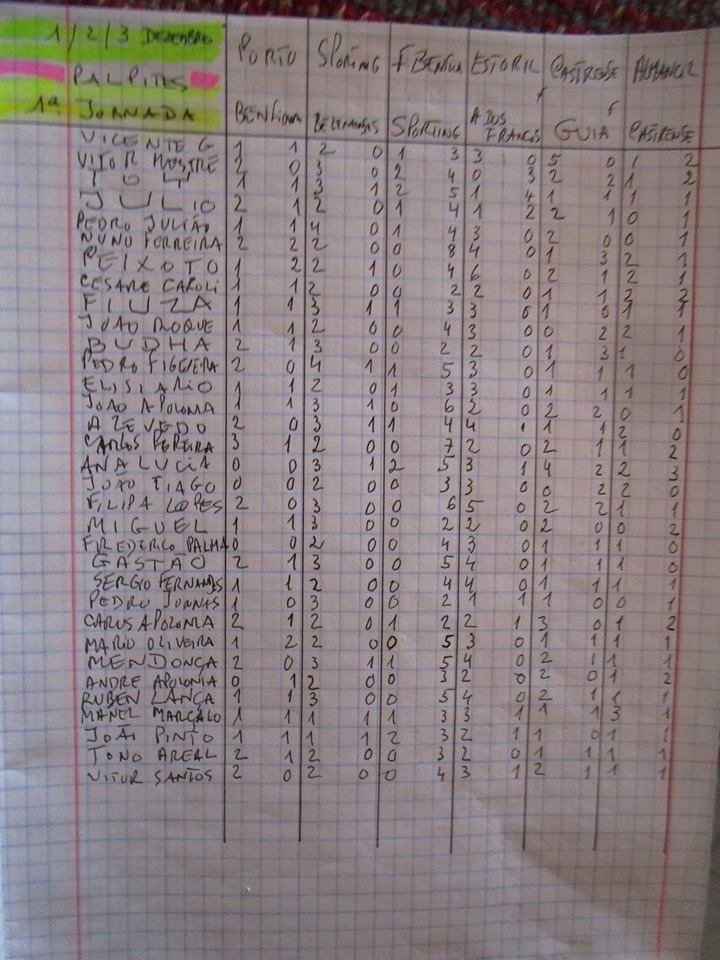 1/2/3 DEZEMBRO PORTO SPORTING F BENFICA ESTORIL CASTRENSE ALMANCIL
PALPITES
1ª JORNADA BENFICA BELENENSES SPORTING A DOS FRANCOS GUIA CASTRENSE
VICENTE G 1 1 2 0 1 3 3 0 5 0 1 2
VITOR MESTRE 1 0 3 0 2 4 0 3 2 2 1 2
TOY 1 1 3 1 2 5 1 4 1 1 1 1
JULIO 2 1 2 0 1 4 1 2 2 1 0 1
PEDRO JULIÃO 1 1 4 0 1 4 3 0 2 0 0 1
NUNO FERREIRA 2 2 2 0 0 8 4 0 1 3 2 1
PEIXOTO 1 2 2 1 0 4 6 0 2 1 2 1
CESARE CAROLI 1 1 2 0 0 2 2 0 1 1 2 2
FIUZA 1 1 3 1 1 3 3 0 1 0 1 1
JOÃO ROQUE 1 1 2 0 0 4 3 0 0 2 2 1
BUDHA 2 1 3 0 0 2 2 0 1 3 1 0
PEDRO FIGUEIRA 2 0 4 1 1 5 3 0 1 1 1 0
ELISIARIO 1 1 2 0 1 3 3 0 1 1 1 1
JOÃO APOLONIA 1 1 3 1 0 6 2 0 2 2 0 1
AZEVEDO 2 0 3 1 1 4 4 1 1 1 2 0
CARLOS PEREIRA 3 1 2 0 0 7 2 0 2 1 1 2
ANA LUCIA 0 0 3 1 2 5 3 1 4 2 2 3
JOÃO TIAGO 0 0 2 0 0 3 3 0 0 2 2 0
FILIPA LOPES 2 0 3 0 0 6 5 0 2 2 1 1
MIGUEL 1 1 3 0 0 2 2 0 2 0 0 2
FREDERICO PALMA 0 0 2 0 0 4 3 0 1 1 1 0
GASTÃO 2 1 3 0 0 5 4 0 1 1 1 0
SERGIO FERNANDES 1 1 2 0 0 4 4 0 1 1 1 1
PEDRO 1 0 3 0 0 2 1 1 1 0 0 1
CARLOS APOLONIA 2 1 2 0 1 2 2 1 3 0 1 2
MARIO OLIVEIRA 1 2 2 0 0 5 3 0 1 1 1 1
MENDONÇA 2 0 3 1 1 5 4 0 2 1 1 1
ANDRE APOLONIA 0 1 2 0 0 3 2 0 2 0 1 2
RUBEN LANÇA 1 1 3 0 0 5 4 0 2 1 1 1
MANEL MARÇALO 1 1 1 1 1 3 3 1 1 1 3 1
JOÃO PINTO 1 1 1 1 2 3 2 1 1 0 1 1
TONO AREAL 2 1 2 0 0 3 2 0 1 1 1 1
VITOR SANTOS 2 0 2 0 0 4 3 1 2 1 1 1